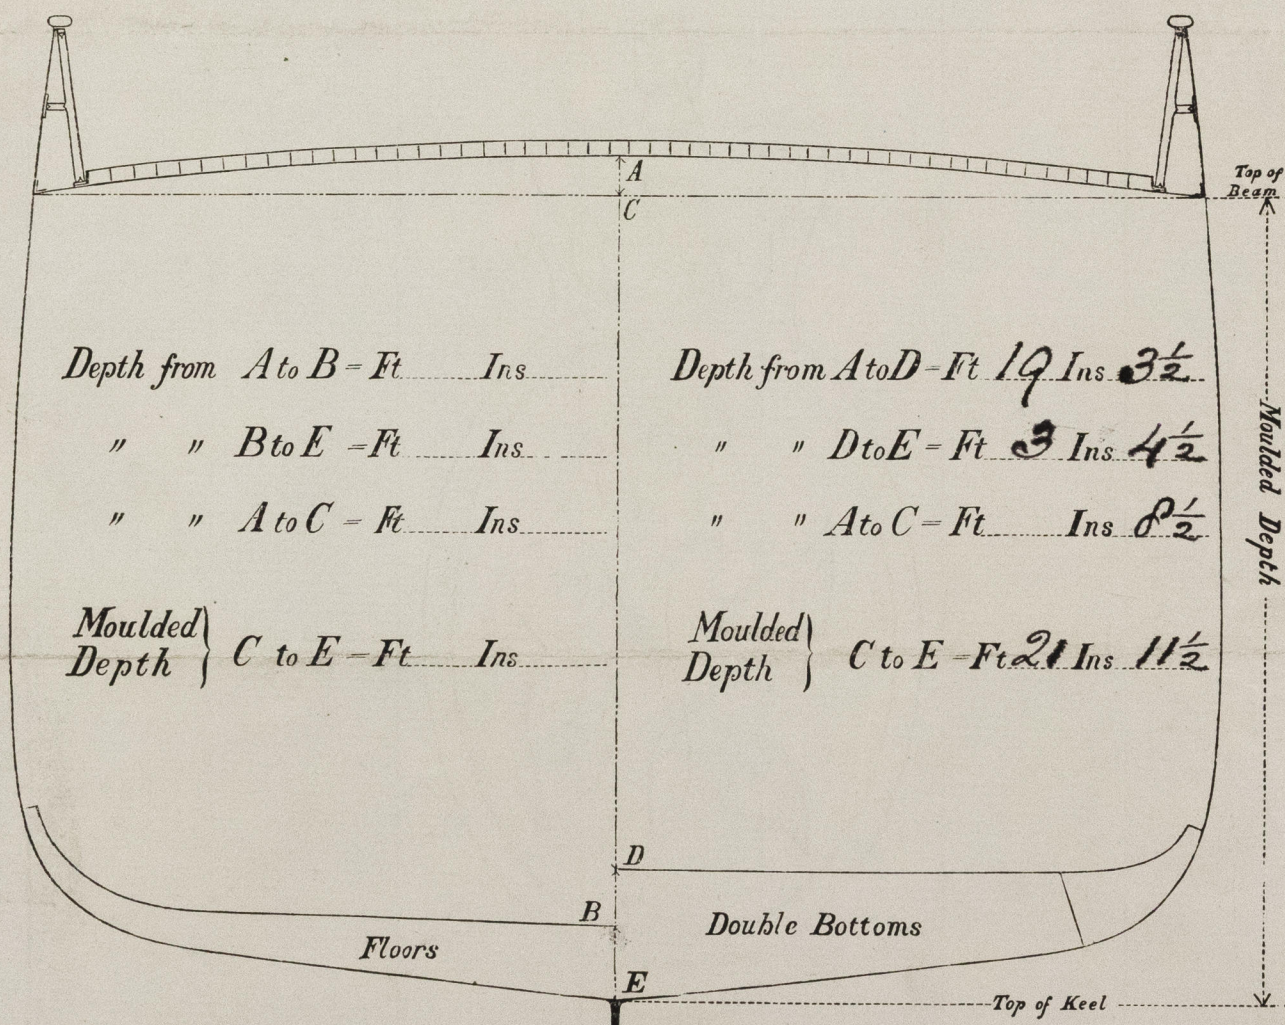 A
Top of
Beam
C
Depth from A to B = Ft Ins
" " B to E = Ft Ins
" " A to C = Ft Ins
Moulded
Depth } C to E = Ft Ins
Depth from A to D = Ft 19 Ins 3½
" " D to E = Ft 3 Ins 4½
" " A to C = Ft Ins 8½
Moulded
Depth } C to E = Ft 21 Ins 11½
Moulded Depth
D
B
Double Bottoms
Floors
E
Top of Keel